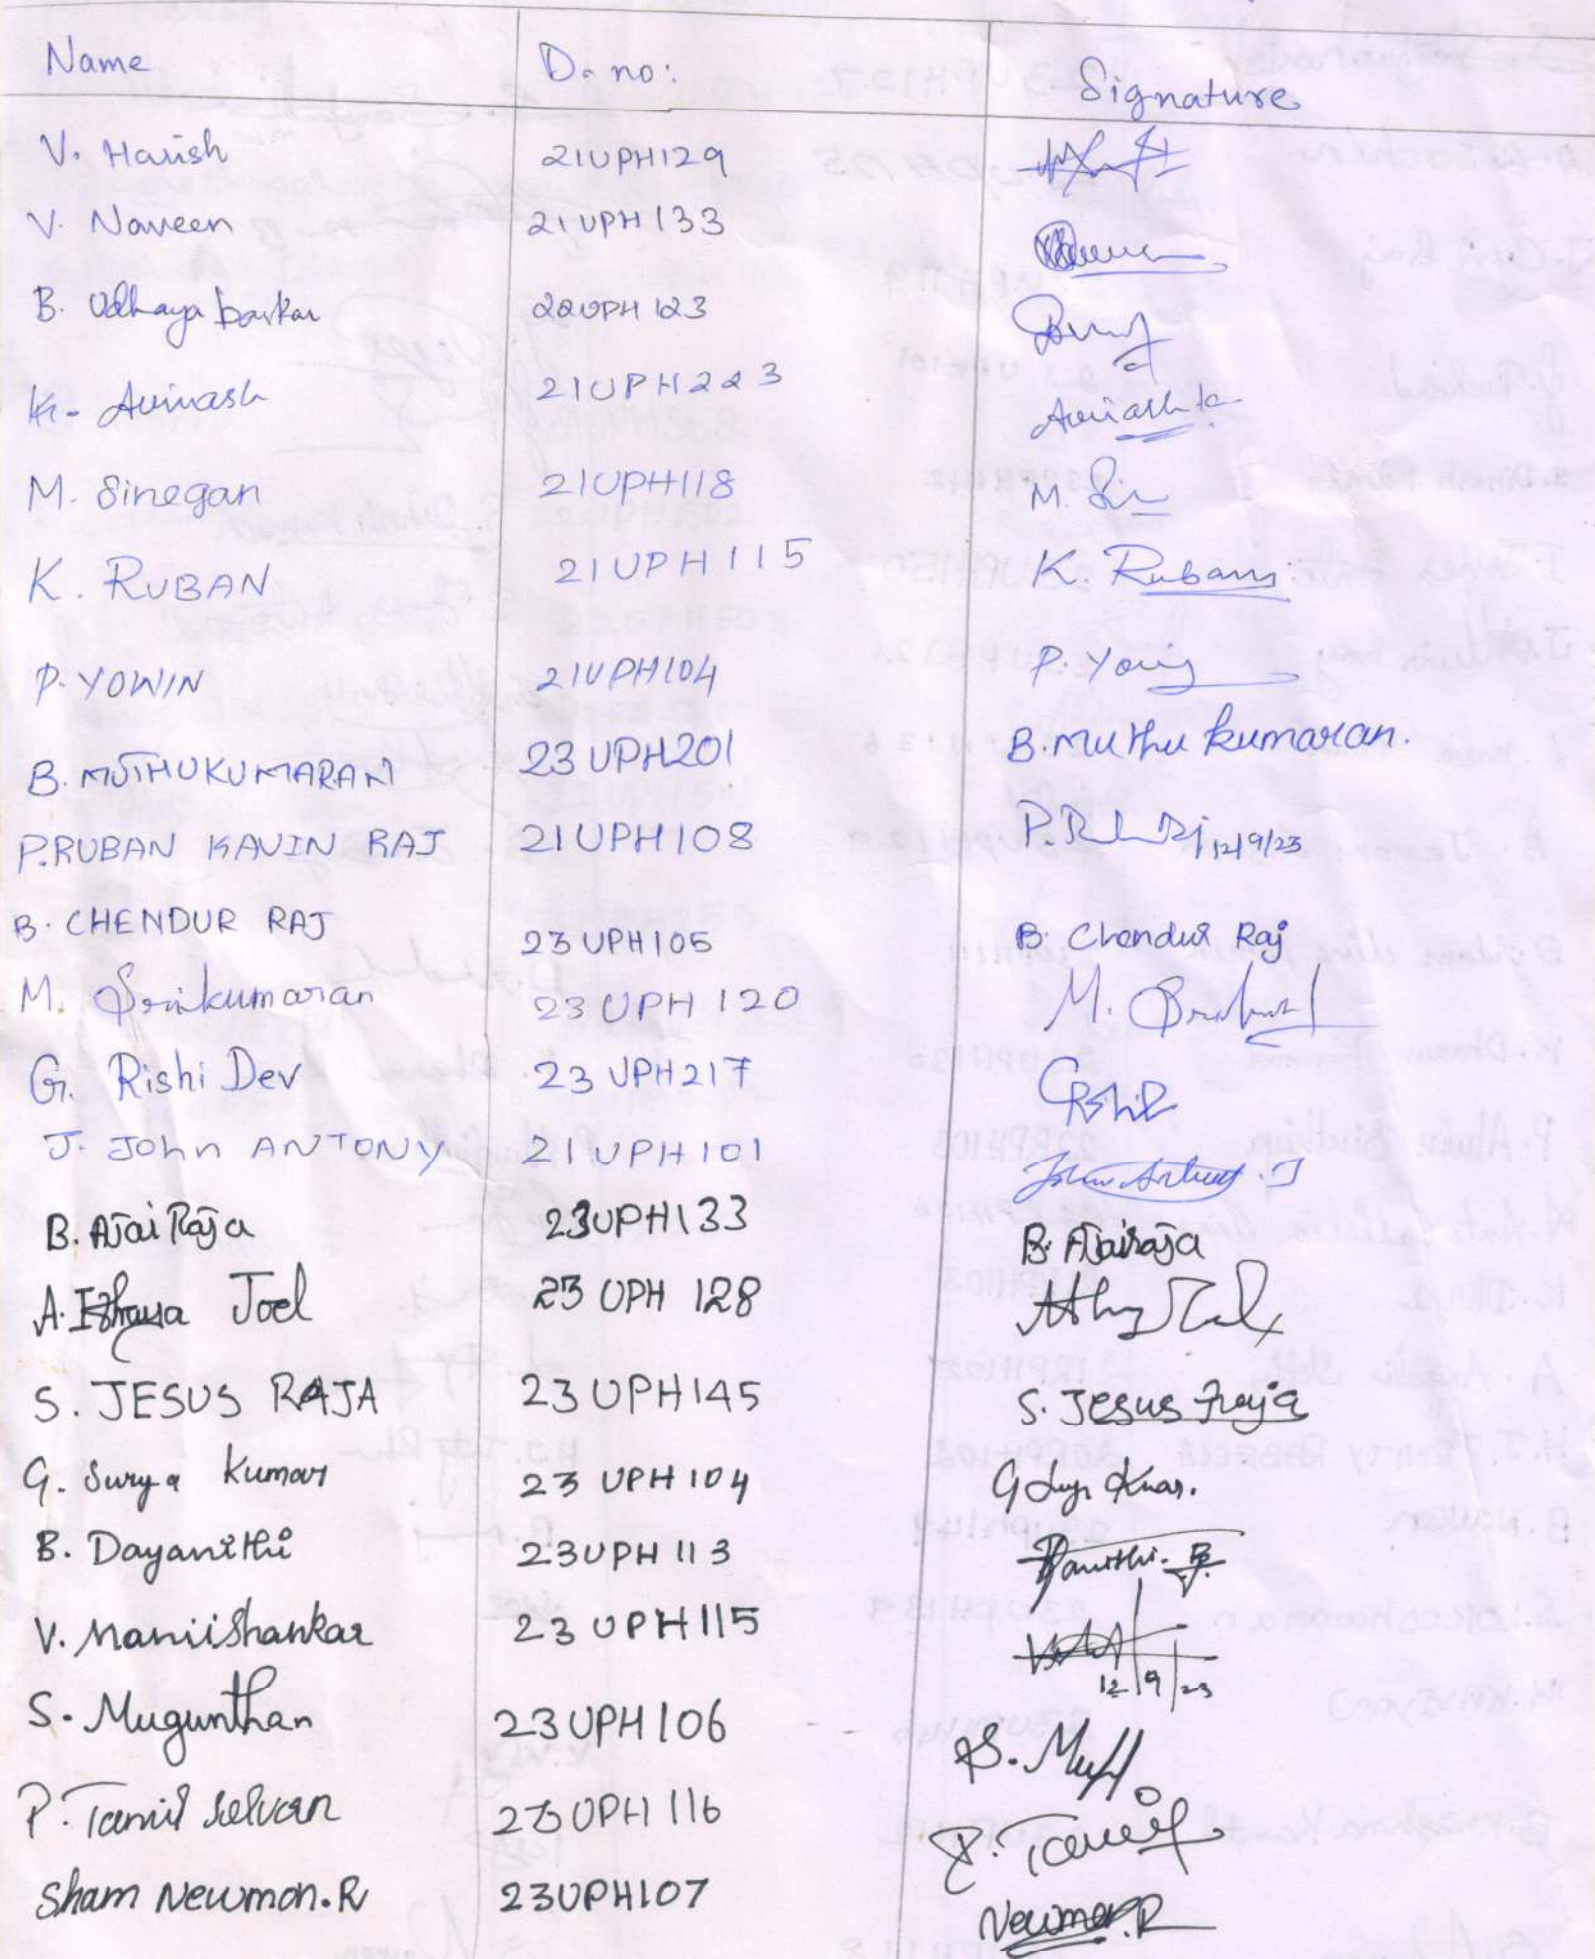 Name D. no: Signature
V. Harish 21UPH129
V. Naveen 21UPH133
B. Udhaya baskar 22UPH123
K. Avinash 21UPH223 Avinash.k
M. Sinegan 21UPH118 M. Sin
K. RUBAN 21UPH115 K. Ruban
P. YOWIN 21UPH104 P. Yowin
B. MUTHUKUMARAN 23UPH201 B. Muthu kumaran.
P. RUBAN KAVIN RAJ 21UPH108 12/9/23
B. CHENDUR RAJ 23UPH105 B. Chendur Raj
M. Srikumaran 23UPH120 M.
G. Rishi Dev 23UPH217
J. John ANTONY 21UPH101 John Antony. J
B. Ajai Raja 23UPH133 B. Ajairaja
A. Joel 23UPH128
S. JESUS RAJA 23UPH145 S. Jesus Raja
G. Surya Kumar 23UPH104
B. Dayanithi 23UPH113
V. Maniishankar 23UPH115 12/9/23
S. Mugunthan 23UPH106
P. Tamil Selvan 23UPH116 P. Tamil
Sham Newmon.R 23UPH107 Newmon.R